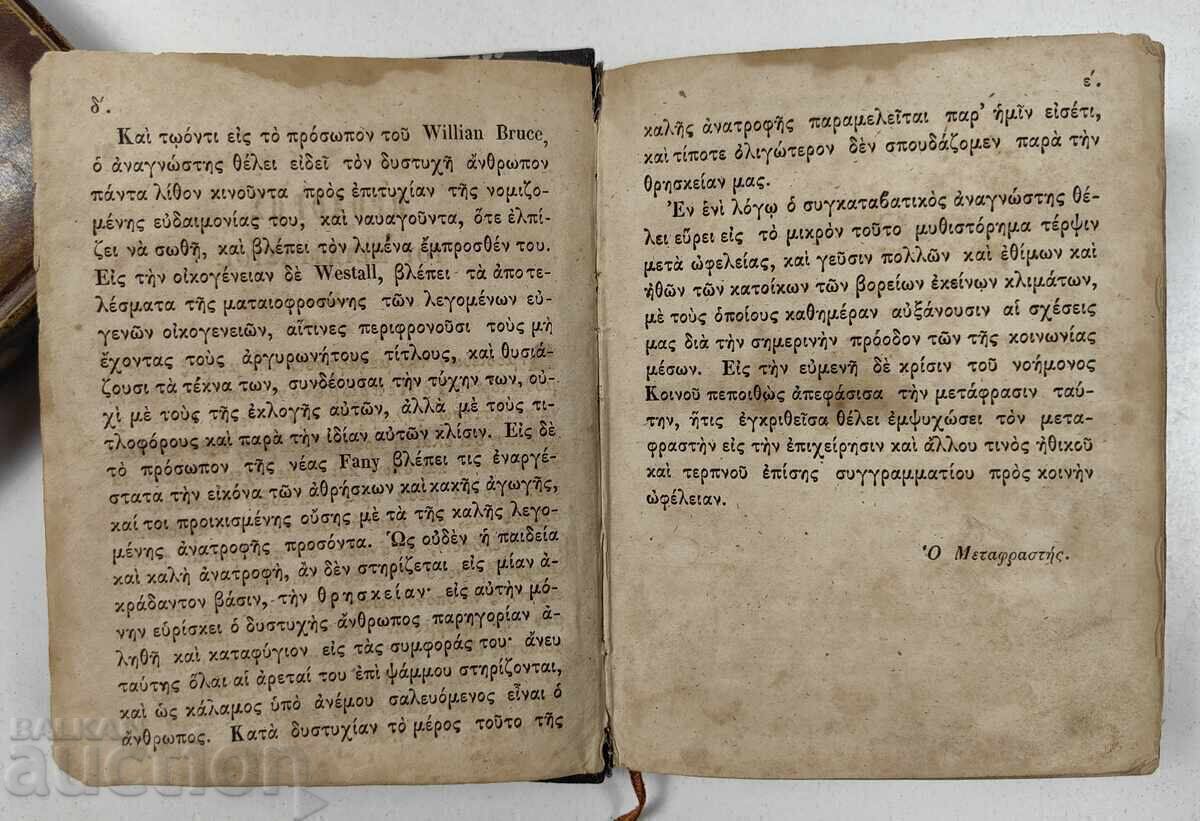 δʹ.
Καὶ τῳόντι εἰς τὸ πρόσωπον τοῦ Willian Bruce,
ὁ ἀναγνώστης θέλει εἰδεῖ τὸν δυστυχῆ ἄνθρωπον
πάντα λίθον κινοῦντα πρὸς ἐπιτυχίαν τῆς νομιζο-
μένης εὐδαιμονίας του, καὶ ναυαγοῦντα, ὅτε ἐλπί-
ζει νὰ σωθῇ, καὶ βλέπει τὸν λιμένα ἔμπροσθέν του.
Εἰς τὴν οἰκογένειαν δὲ Westall, βλέπει τὰ ἀποτε-
λέσματα τῆς ματαιοφροσύνης τῶν λεγομένων εὐ-
γενῶν οἰκογενειῶν, αἵτινες περιφρονοῦσι τοὺς μὴ
ἔχοντας τοὺς ἀργυρωνήτους τίτλους, καὶ θυσιά-
ζουσι τὰ τέκνα των, συνδέουσαι τὴν τύχην των, οὐ-
χὶ μὲ τοὺς τῆς ἐκλογῆς αὐτῶν, ἀλλὰ μὲ τοὺς τι-
τλοφόρους καὶ παρὰ τὴν ἰδίαν αὐτῶν κλίσιν. Εἰς δὲ
τὸ πρόσωπον τῆς νέας Fany βλέπει τις ἐναργέ-
στατα τὴν εἰκόνα τῶν ἀθρήσκων καὶ κακῆς ἀγωγῆς,
καί τοι προικισμένης οὔσης μὲ τὰ τῆς καλῆς λεγο-
μένης ἀνατροφῆς προσόντα. Ὡς οὐδὲν ἡ παιδεία
καὶ καλὴ ἀνατροφὴ, ἂν δὲν στηρίζεται εἰς μίαν ἀ-
κράδαντον βάσιν, τὴν θρησκείαν· εἰς αὐτὴν μό-
νην εὑρίσκει ὁ δυστυχὴς ἄνθρωπος παρηγορίαν ἀ-
ληθῆ καὶ καταφύγιον εἰς τὰς συμφοράς του· ἄνευ
ταύτης ὅλαι αἱ ἀρεταί του ἐπὶ ψάμμου στηρίζονται,
καὶ ὡς κάλαμος ὑπὸ ἀνέμου σαλευόμενος εἶναι ὁ
ἄνθρωπος. Κατὰ δυστυχίαν τὸ μέρος τοῦτο τῆς
εʹ.
καλῆς ἀνατροφῆς παραμελεῖται παρ' ἡμῖν εἰσέτι,
καὶ τίποτε ὀλιγώτερον δὲν σπουδάζομεν παρὰ τὴν
θρησκείαν μας.
Ἐν ἑνὶ λόγῳ ὁ συγκαταβατικὸς ἀναγνώστης θέ-
λει εὕρει εἰς τὸ μικρὸν τοῦτο μυθιστόρημα τέρψιν
μετὰ ὠφελείας, καὶ γεῦσιν πολλῶν καὶ ἐθίμων καὶ
ἠθῶν τῶν κατοίκων τῶν βορείων ἐκείνων κλιμάτων,
μὲ τοὺς ὁποίους καθημέραν αὐξάνουσιν αἱ σχέσεις
μας διὰ τὴν σημερινὴν πρόοδον τῶν τῆς κοινωνίας
μέσων. Εἰς τὴν εὐμενῆ δὲ κρίσιν τοῦ νοήμονος
Κοινοῦ πεποιθὼς ἀπεφάσισα τὴν μετάφρασιν ταύ-
την, ἥτις ἐγκριθεῖσα θέλει ἐμψυχώσει τὸν μετα-
φραστὴν εἰς τὴν ἐπιχείρησιν καὶ ἄλλου τινὸς ἠθικοῦ
καὶ τερπνοῦ ἐπίσης συγγραμματίου πρὸς κοινὴν
ὠφέλειαν.
Ὁ Μεταφραστής.
BALKAN
auction